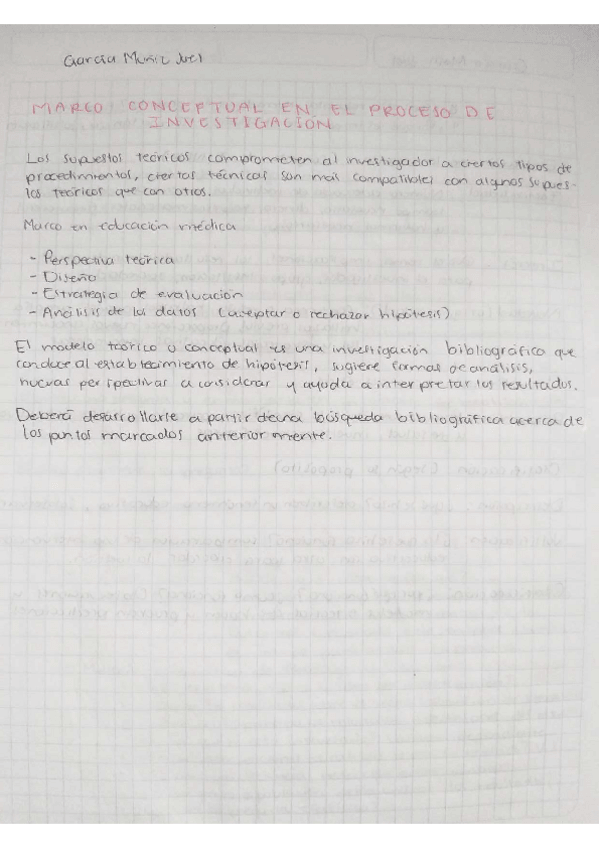 García Muñiz Joel
MARCO CONCEPTUAL EN EL PROCESO DE
INVESTIGACIÓN
Los supuestos teóricos comprometen al investigador a ciertos tipos de
procedimientos, ciertas técnicas son más compatibles con algunos supues-
tos teóricos que con otros.
Marco en educación médica
- Perspectiva teórica
- Diseño
- Estrategia de evaluación
- Análisis de los datos (aceptar o rechazar hipótesis)
El modelo teórico o conceptual es una investigación bibliográfica que
conduce al establecimiento de hipótesis, sugiere formas de análisis,
nuevas perspectivas a considerar y ayuda a interpretar los resultados.
Deberá desarrollarse a partir de una búsqueda bibliográfica acerca de
los puntos marcados anteriormente.